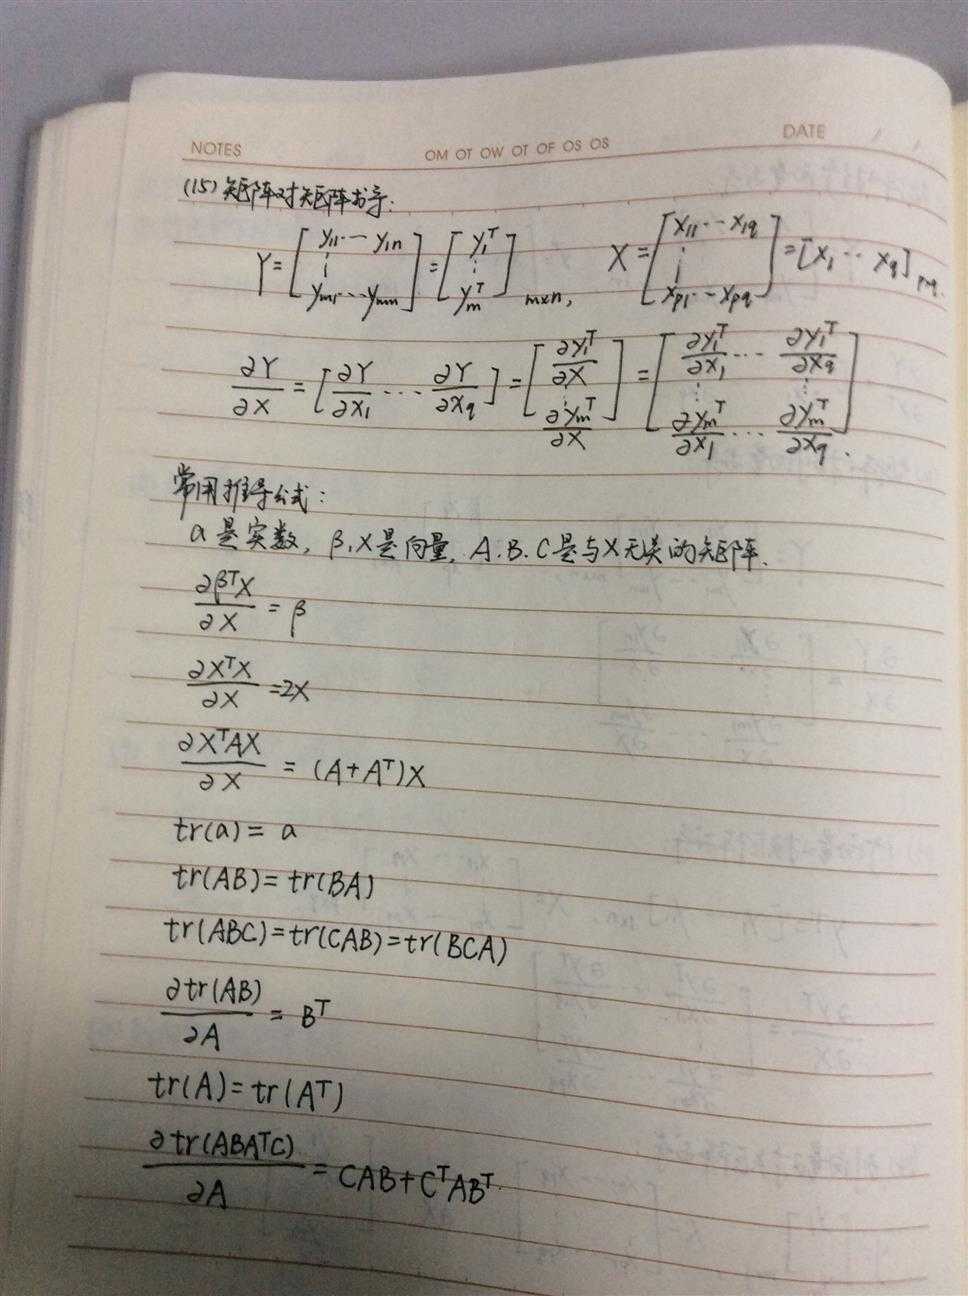 NOTES OM OT OW OT OF OS OS DATE
(15) 矩阵对矩阵求导:
Y = [y₁₁ … y₁ₙ ⋮ yₘ₁ … yₘₙ] = [y₁ᵀ ⋮ yₘᵀ] m×n, X = [x₁₁ … x₁q ⋮ xp₁ … xpq] = [x₁ … xq] pq.
∂Y/∂X = [∂Y/∂x₁ … ∂Y/∂xq] = [∂y₁ᵀ/∂X ⋮ ∂yₘᵀ/∂X] = [∂y₁ᵀ/∂x₁ … ∂y₁ᵀ/∂xq ⋮ ∂yₘᵀ/∂x₁ … ∂yₘᵀ/∂xq].
常用推导公式:
a 是实数, β, X是向量, A.B.C是与X无关的矩阵.
∂βᵀX/∂X = β
∂XᵀX/∂X = 2X
∂XᵀAX/∂X = (A+Aᵀ)X
tr(a) = a
tr(AB) = tr(BA)
tr(ABC) = tr(CAB) = tr(BCA)
∂tr(AB)/∂A = Bᵀ
tr(A) = tr(Aᵀ)
∂tr(ABAᵀC)/∂A = CAB + CᵀABᵀ.